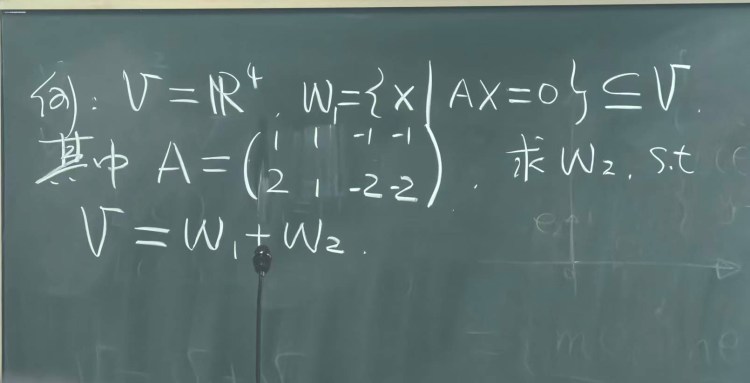 例: V=ℝ⁴, W₁={X|AX=0}⊆V.
其中 A=(1 1 -1 -1
2 1 -2 -2). 求W₂, s.t
V=W₁+W₂.